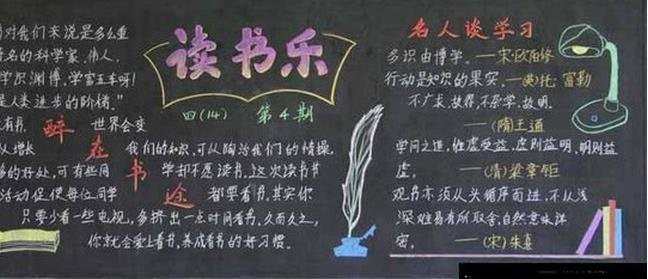 读书乐
四(14) 第4期
对我们来说是多么重
名的科学家、伟人、
学识渊博，学富五车呀！
是人类进步的阶梯。"
书. 醉 世界会变
从增长 在 我们的知识，可以陶冶我们的情操，
的好处，可有些同 书 学却不愿读书，这次读书节
活动促使每位同学 途 都要看书，其实你
只要少看一些电视，多挤出一点时间看书，久而久之，
你就会爱上看书，养成看书的好习惯。
名人谈学习
多识由博学。——宋·欧阳修
行动是知识的果实。——(英)托·富勒
不广求，故得，不杂学，故明。
——(隋)王通
学问之道，惟虚受益，虚则益明，明则益
虚。——(清)梁章钜
观书亦须从头循序而进，不以浅
深难易有所取舍，自然意味详
密。——(宋)朱熹